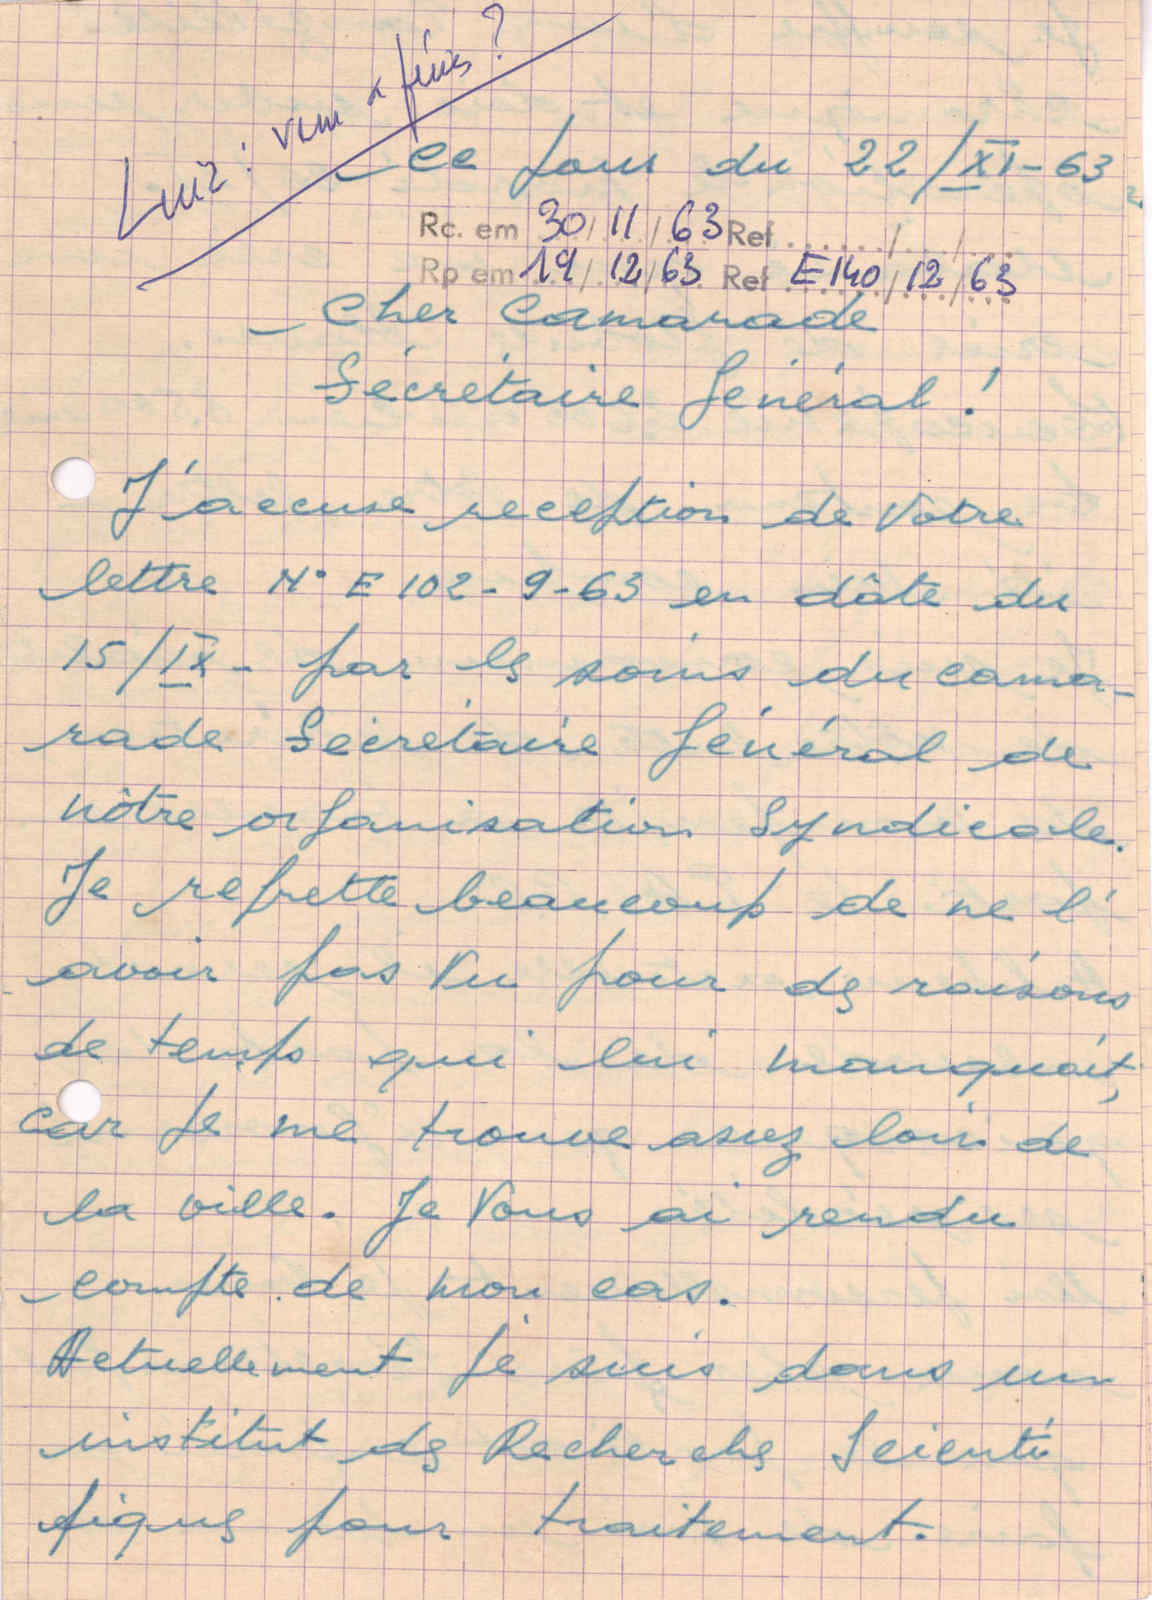 Luiz: vem a
Ce Jour du 22/XI-63
Rc. em 30/11/63 Ref ....../..../....
Rp em 19/12/63 Ref E140/12/63
Cher Camarade
Sécrétaire Général!
J'accuse reception de Votre
lettre N° E 102-9-63 en dâte du
15/IX- par les soins du cama-
rade Sécrétaire Général de
nôtre organisation Syndicale.
Je regrette beaucoup de ne l'
avoir pas Vu pour des raisons
de temps qui lui manquait,
car Je me trouve assez loin de
la ville. Je Vous ai rendu
compte de mon cas.
Actuellement Je suis dans un
institut des Recherches Scienti
fiques pour traitement.